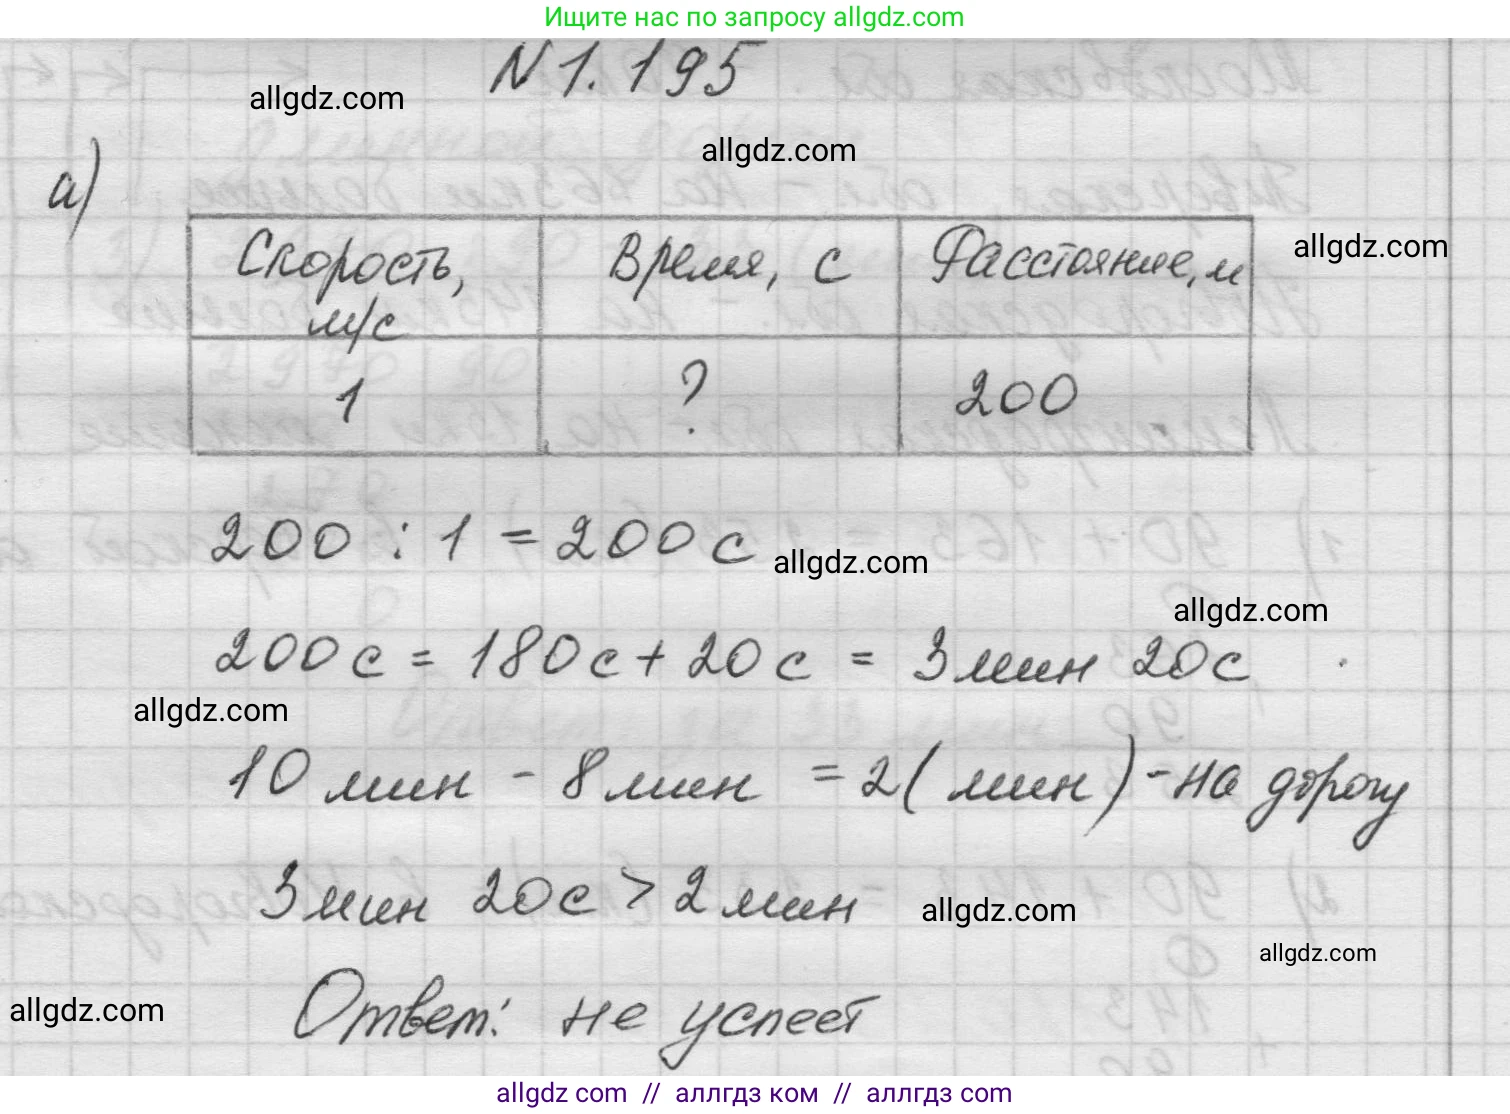 Ищите нас по запросу allgdz.com
N 1.195
allgdz.com
allgdz.com
а)
Скорость, м/с
Время, с
Расстояние, м
allgdz.com
1
?
200
200 : 1 = 200 с
allgdz.com
allgdz.com
200 с = 180 с + 20 с = 3 мин 20 с
allgdz.com
10 мин - 8 мин = 2 (мин) - на дорогу
3 мин 20 с > 2 мин
allgdz.com
allgdz.com
allgdz.com
Ответ: не успеет
allgdz com // аллгдз ком // аллгдз com